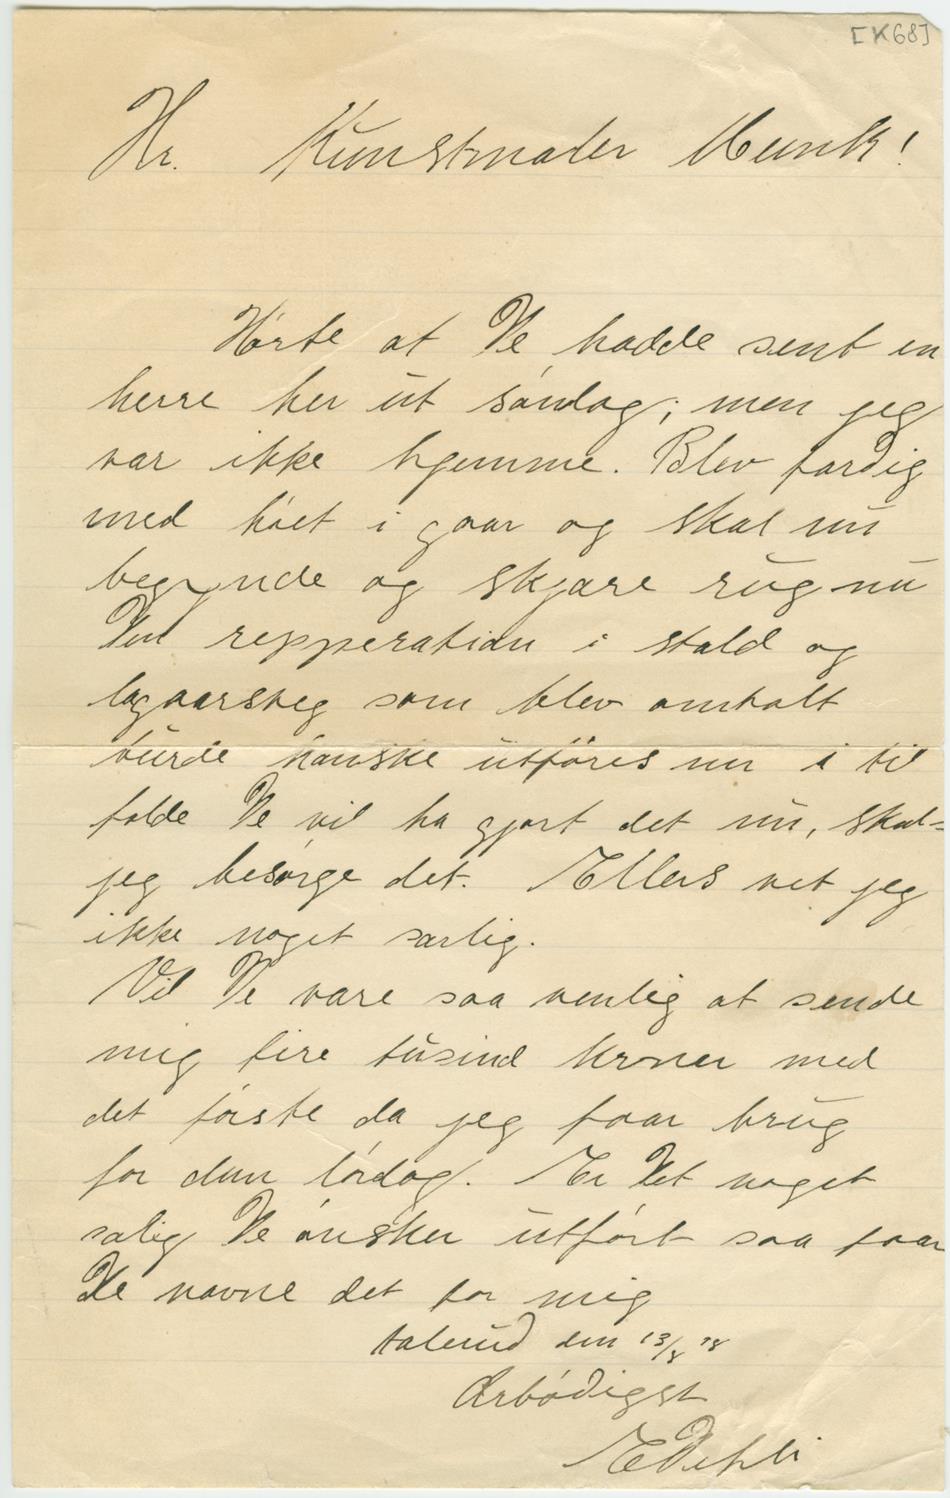 [K68]
Hr. Kunstmaler Munk!
Hørte at De hadde sent en
herre her ut søndag; men jeg
var ikke hjemme. Blev færdig
med høet i gaar og skal nu
begynde og skjære rug nu
Den repperation i stald og
som blev omtalt
burde kanske utføres nu i til
fælde De vil ha gjort det nu, skal-
jeg besørge det. Ellers vet jeg
ikke noget særlig.
Vil De være saa venlig at sende
mig fire tusind kroner med
det første da jeg faar brug
for dem lørdag. Er det noget
sælig De ønsker utført saa faar
De nævne det for mig
den 13/8 18
Ærbødigst
E Dehli